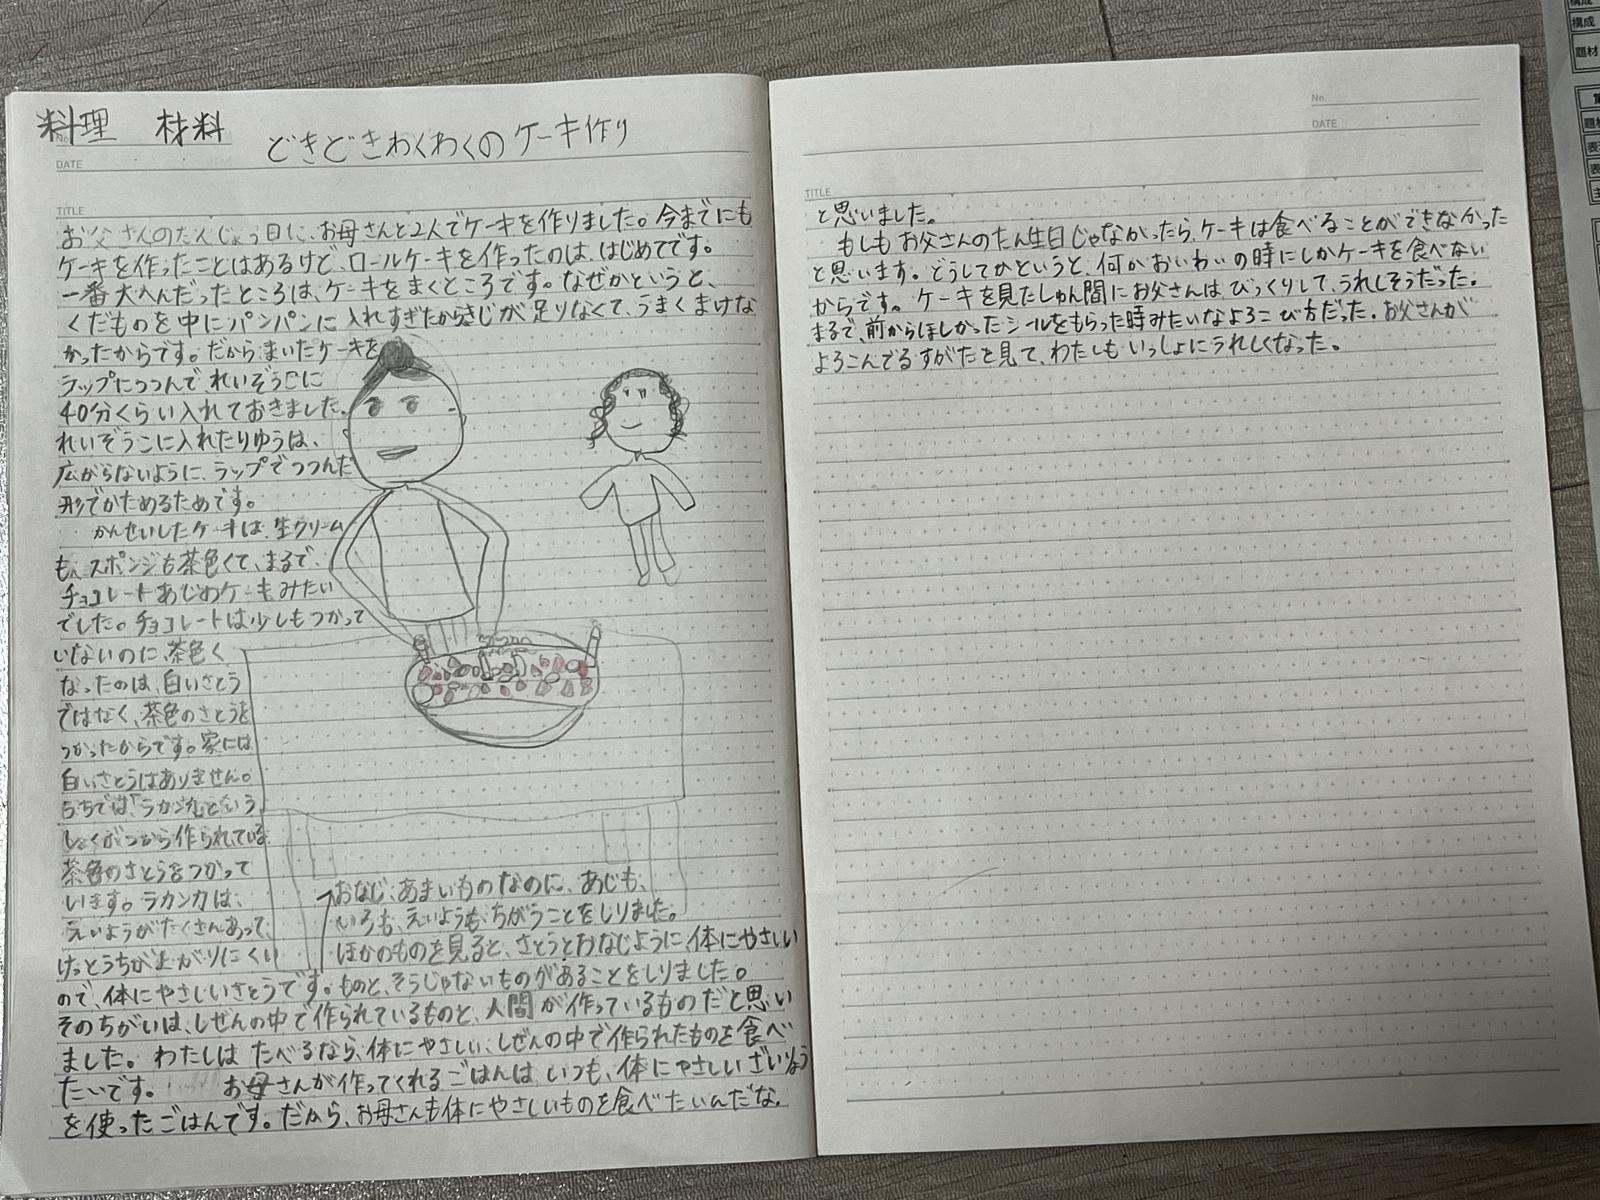 料理　材料
どきどきわくわくのケーキ作り
No.
DATE
TITLE
お父さんのたんじょう日に、お母さんと2人でケーキを作りました。今までにも
ケーキを作ったことはあるけど、ロールケーキを作ったのは、はじめてです。
一番大へんだったところは、ケーキをまくところです。なぜかというと、
くだものを中にパンパンに入れすぎたからきじが足りなくて、うまくまけな
かったからです。だから、まいたケーキを
ラップにつつんで、れいぞうこに
40分くらい入れておきました。
れいぞうこに入れたりゆうは、
広がらないように、ラップでつつんだ
形でかためるためです。
かんせいしたケーキは、生クリーム
も、スポンジも茶色くて、まるで、
チョコレートあじのケーキみたい
でした。チョコレートは少しもつかって
いないのに、茶色く
なったのは、白いさとう
ではなく、茶色のさとうを
つかったからです。家には
白いさとうはありません。
うちでは「ラカンカ」という
しょくぶつから作られている
茶色のさとうをつかって
います。ラカンカは、
えいようがたくさんあって、
けっとうちが上がりにくい
ので、体にやさしいさとうです。
おなじ、あまいものなのに、あじも、
いろも、えいようも、ちがうことをしりました。
ほかのものを見ると、さとうとおなじように、体にやさしい
ものと、そうじゃないものがあることをしりました。
そのちがいは、しぜんの中で作られているものと、人間が作っているものだと思い
ました。わたしはたべるなら、体にやさしい、しぜんの中で作られたものを食べ
たいです。　お母さんが作ってくれるごはんは、いつも、体にやさしいざいりょう
を使ったごはんです。だから、お母さんも体にやさしいものを食べたいんだな、
No.
DATE
TITLE
と思いました。
もしもお父さんのたん生日じゃなかったら、ケーキは食べることができなかった
と思います。どうしてかというと、何かおいわいの時にしかケーキを食べない
からです。ケーキを見たしゅん間にお父さんは、びっくりして、うれしそうだった。
まるで、前からほしかったシールをもらった時みたいなよろこび方だった。お父さんが
よろこんでるすがたを見て、わたしもいっしょにうれしくなった。
構成
題材